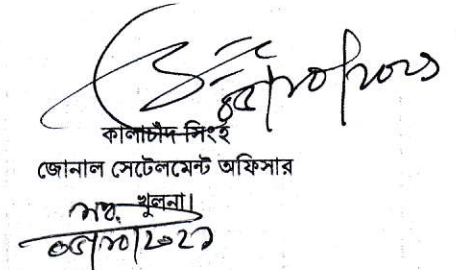 ০৫/১০/২০২১
কালাচাঁদ সিংহ
জোনাল সেটেলমেন্ট অফিসার
খুলনা।
০৫/১০/২০২১